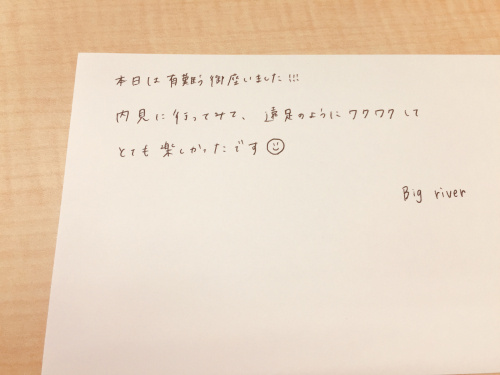 本日は有難う御座いました!!!
内見に行ってみて、遠足のようにワクワクして
とても楽しかったです☺
Big river